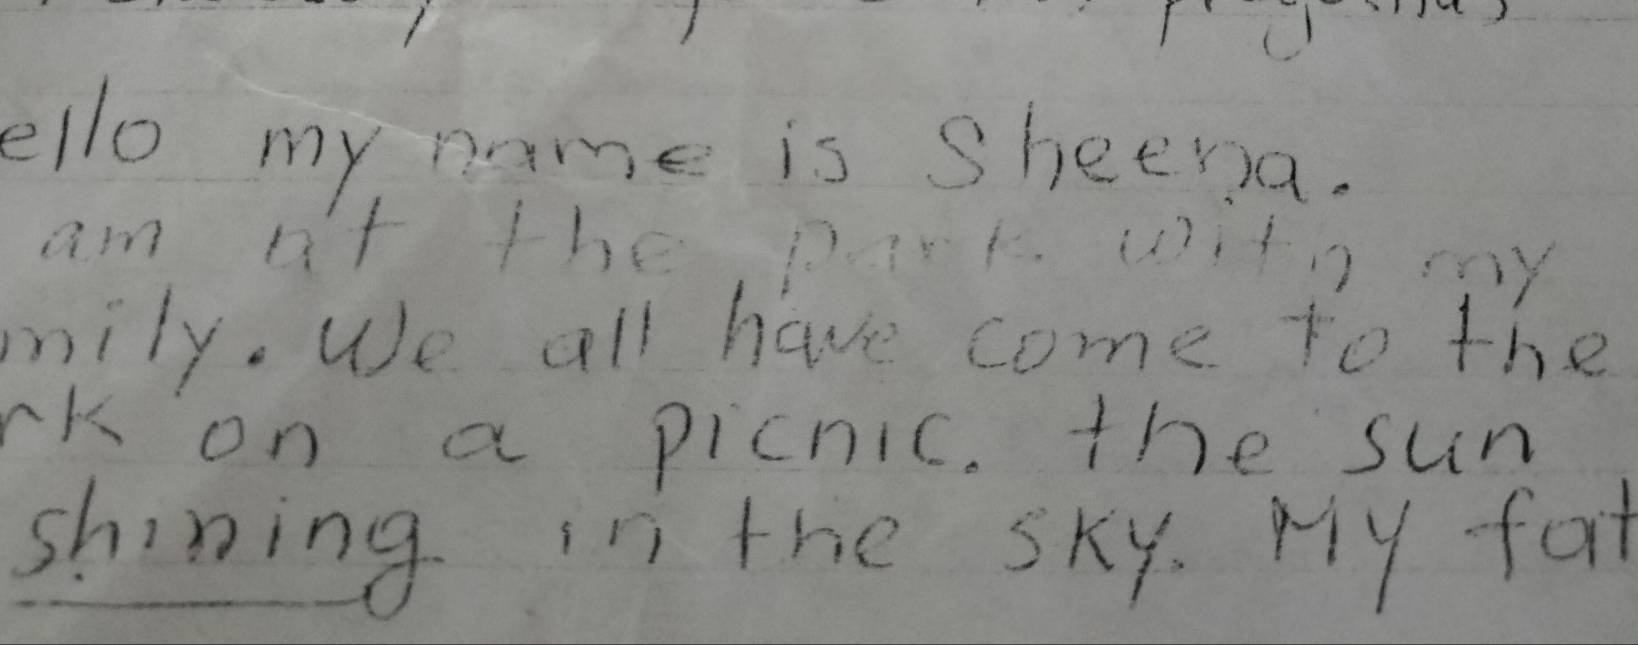 ello my name is Sheena.
am at the park with my
mily. We all have come to the
rk on a picnic. the sun
shining in the sky. My fat